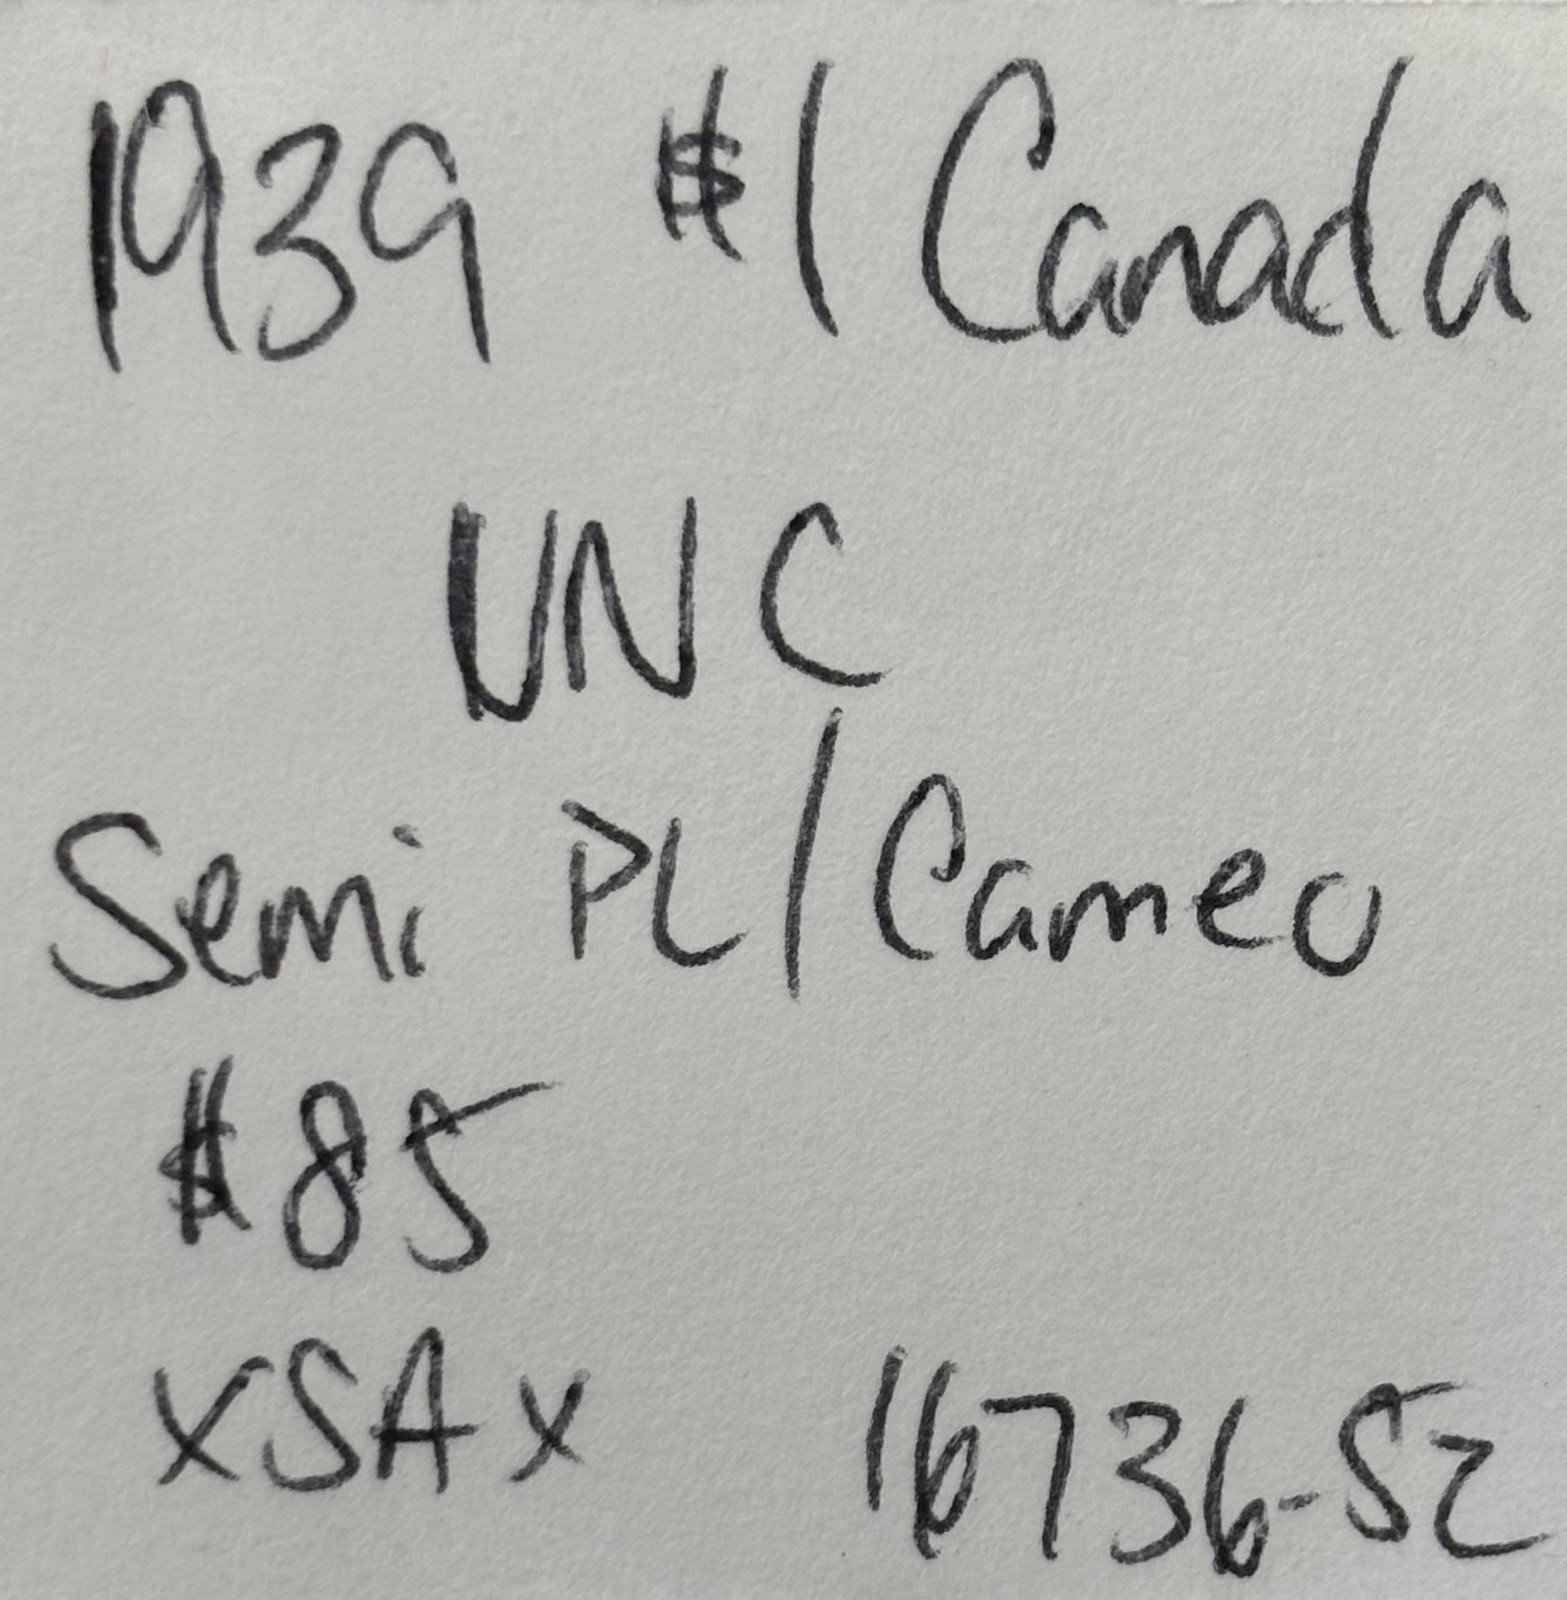 1939 $1 Canada
UNC
Semi PL/Cameo
$85
XSAX 16736-52